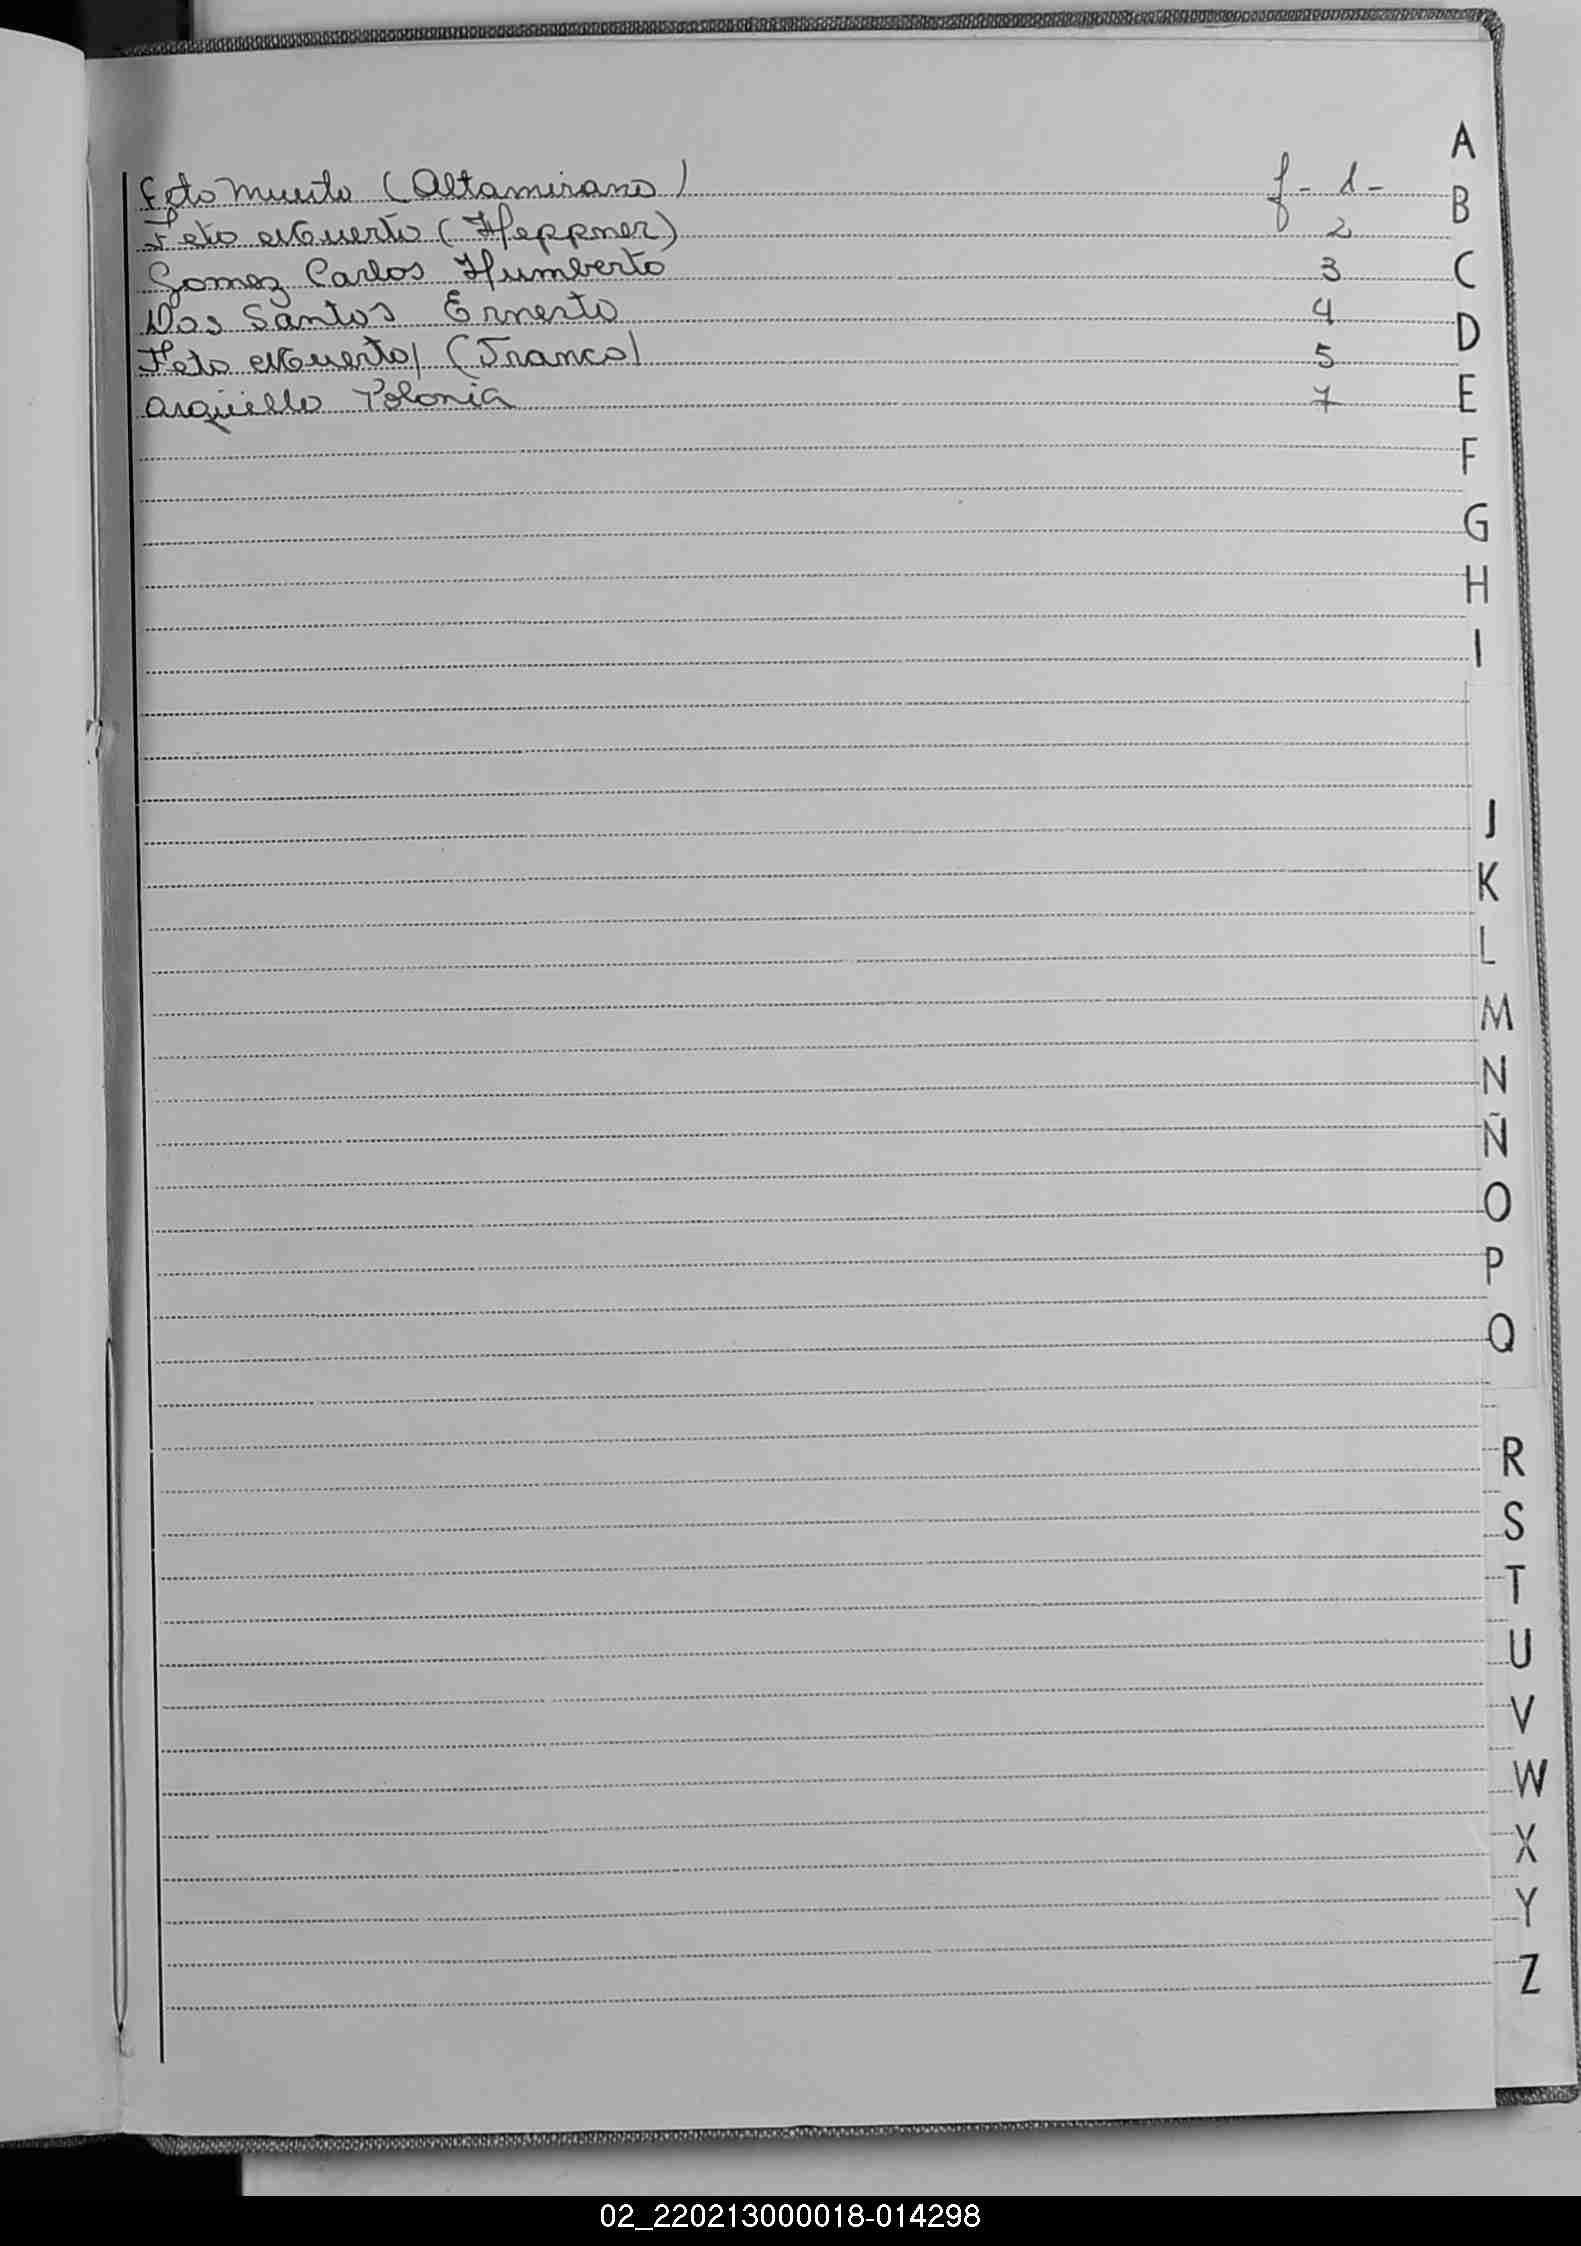 Feto Muerto (Altamirano) f- 1-
Feto Muerto (Heppner) 2
Gomez Carlos Humberto 3
Dos Santos Ernesto 4
Feto Muerto (Franco) 5
Arguello Polonia 7
A
B
C
D
E
F
G
H
I
J
K
L
M
N
Ñ
O
P
Q
R
S
T
U
V
W
X
Y
Z
02_220213000018-014298